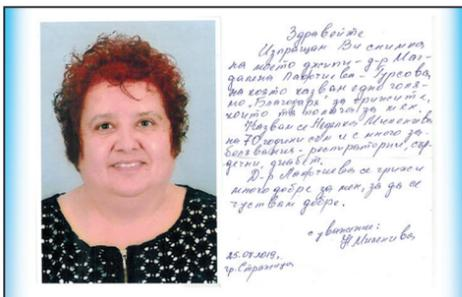 Здравейте
Изпращам Ви снимка
на моето джипи - д-р Маг-
далина Лафчиева - Гурсова,
на която казвам едно голя-
мо „Благодаря“ за грижите,
които тя полага за мен.
Казвам се Недялка Миленчева
на 70 години съм и с много за-
болявания - респираторни, сър-
дечни, диабет.
Д-р Лафчиева се грижи
много добре за мен, за да се
чуствам добре.
с уважение:
Н. Миленчева
25.07.2019г.
гр. Стражица